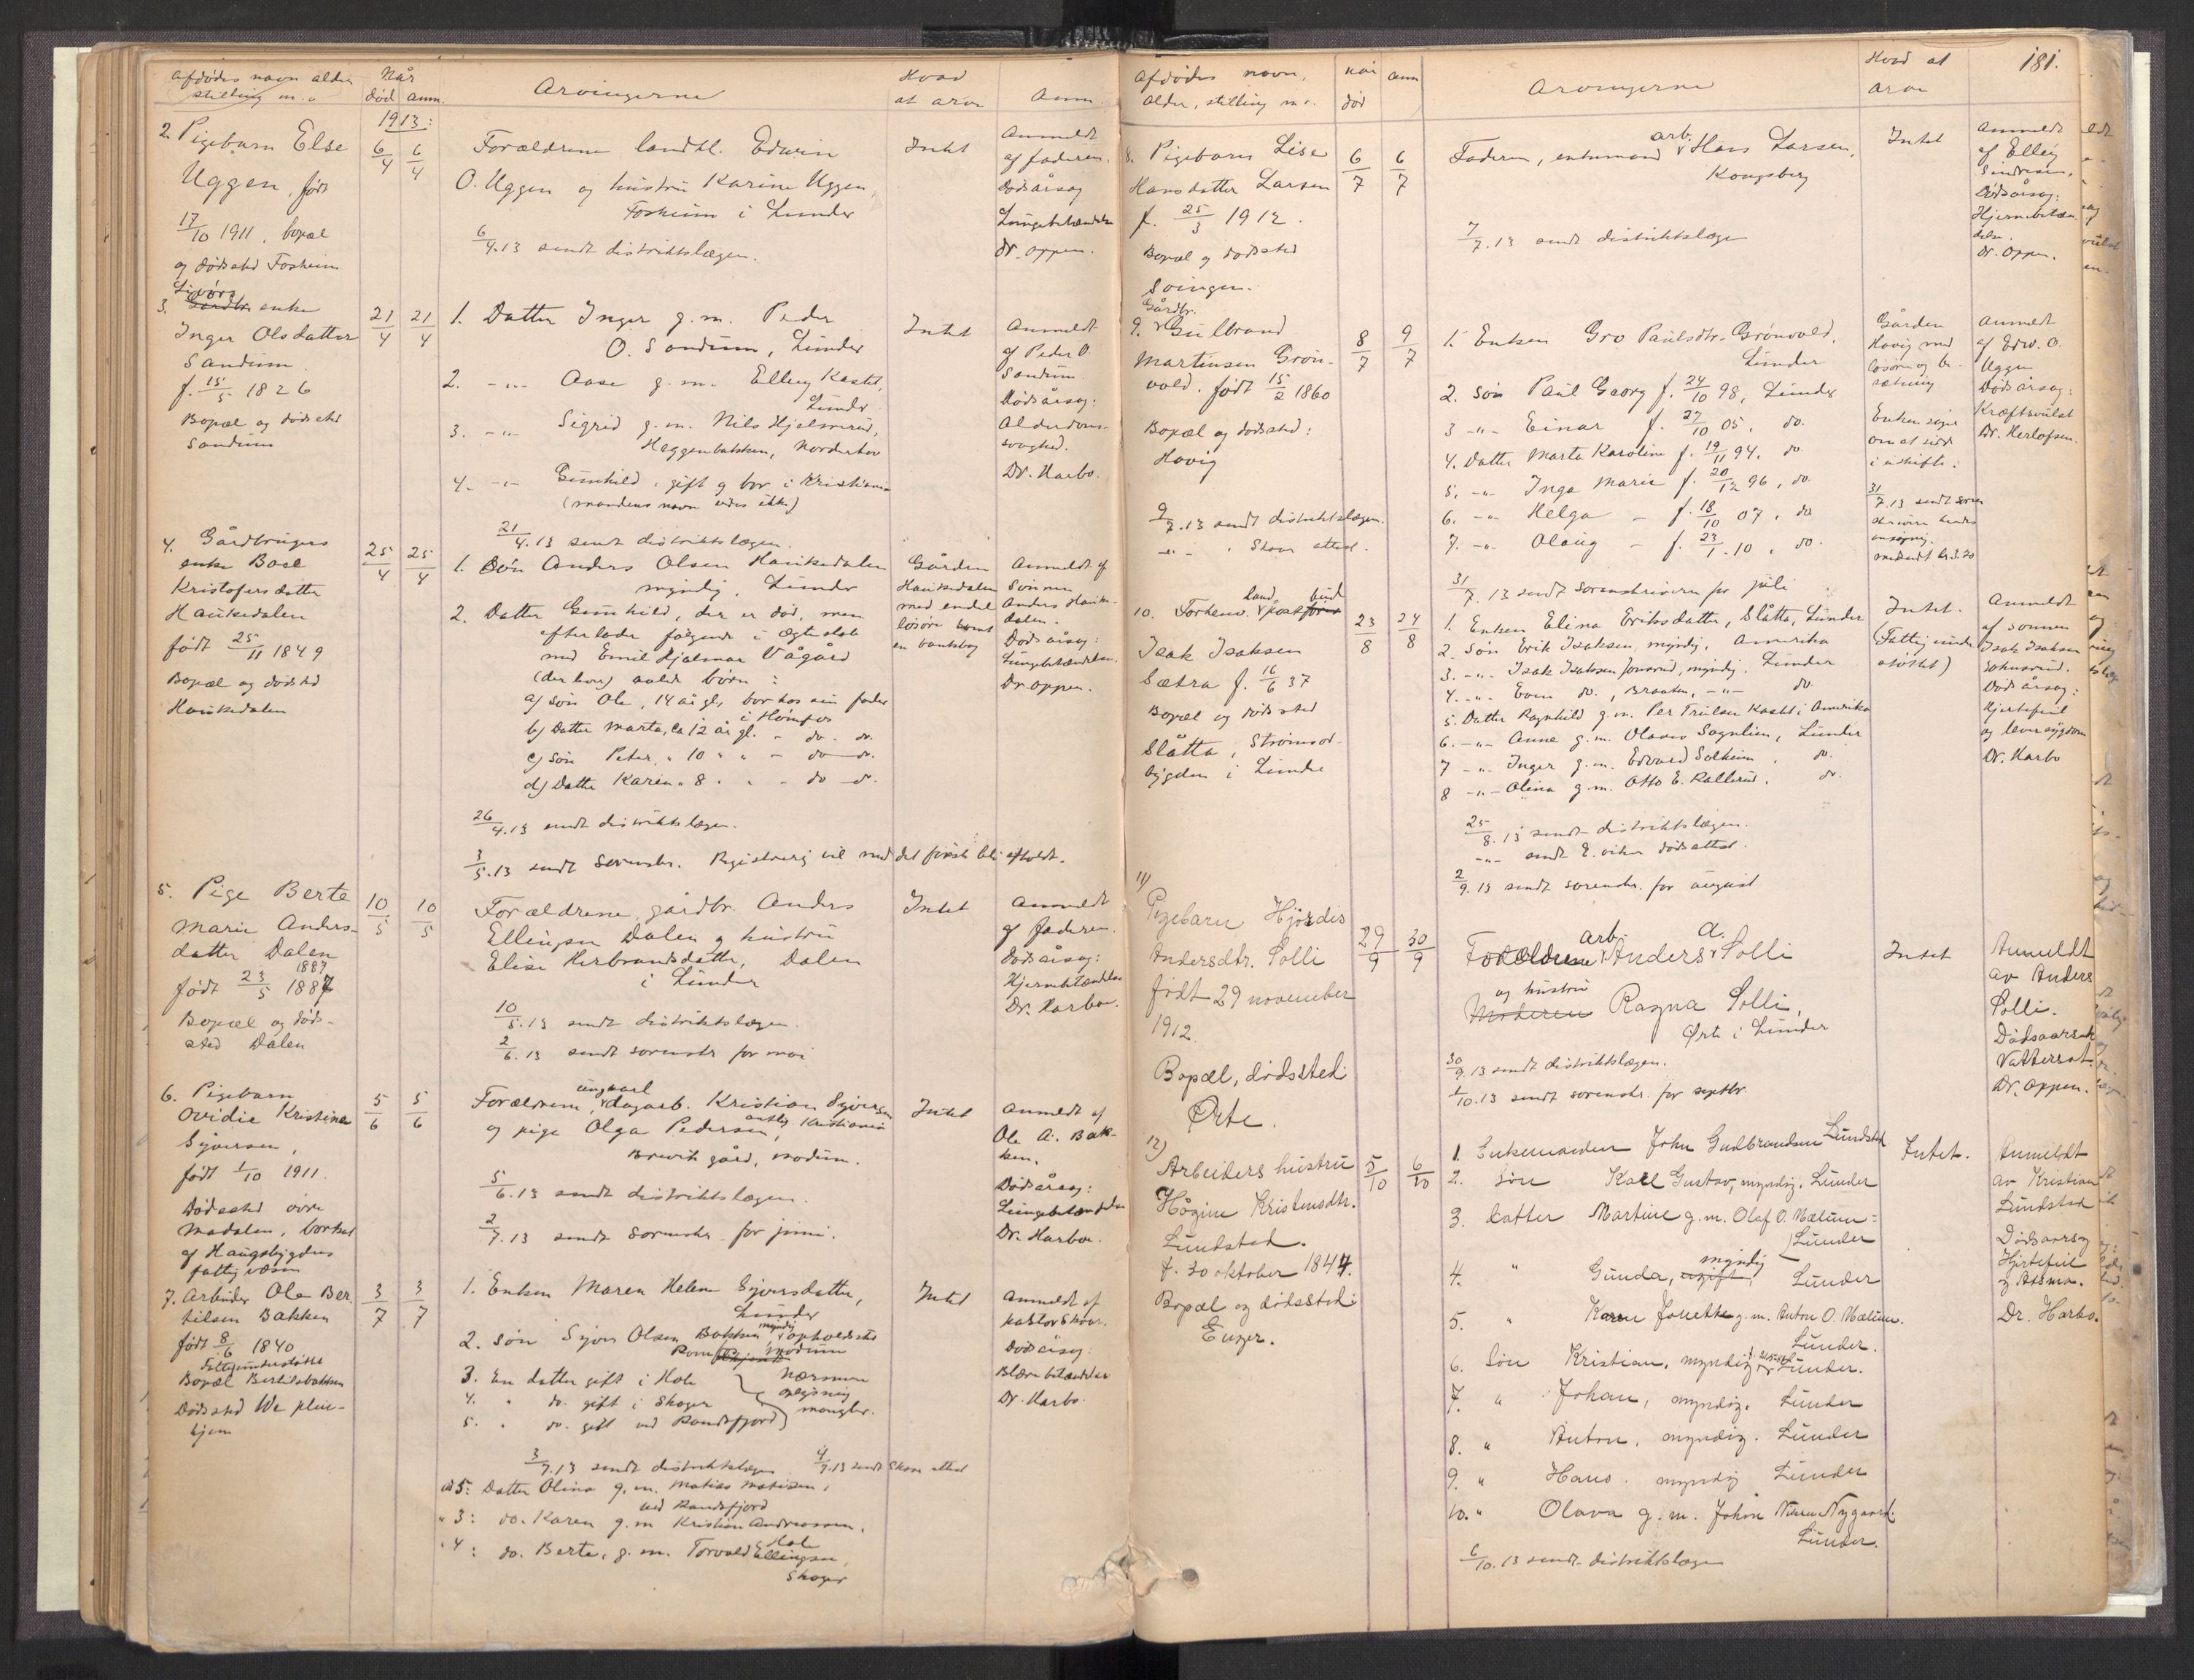 Afdødes navn alder
stilling m.v
Når
død anm.
Arvingerne
Hvad
at arve
Anm.
1913:
2. Pigebarn Else
Uggen, født
17/10 1911, bopæl
og dødsted Fosheim
6/4 6/4
Forældrene landhl. Edwin
O. Uggen og hustru Karine Uggen,
Fosheim i Lunder
6/4.13 sendt distriktslægen.
Intet
Anmeldt
af faderen.
Dødsårsag
Lungebetændelse
Dr. Oppen.
3. Gårdbr. enke
Inger Olsdatter
Sandum
f. 15/5 1826
Bopæl og dødsted
Sandum
21/4 21/4
1. Datter Inger g.m. Peder
O. Sandum, Lunder
2. -"- Aase g.m. Elling Kastet,
Lunder
3. -"- Sigrid g.m. Nils Hjelmerud,
Heggenbakken, Norderhov
4. -"- Gunhild, gift og bor i Kristiania
(mandens navn vides ikke)
21/4.13 sendt distriktslægen.
Intet
Anmeldt
af Peder O.
Sandum.
Dødsårsag:
Alderdoms-
svaghed.
Dr. Harbo.
4. Gårdbrugers
enke Boel
Kristofersdatter
Haukedalen
født 25/11 1849
Bopæl og dødsted
Haukedalen
25/4 25/4
1. Søn Anders Olsen Haukedalen
myndig, Lunder
2. Datter Gunhild, der er død, men
efterlader følgende i ægteskab
med Emil Hjalmar Vågård
(der lever) avlede børn:
a) søn Ole, 14 år gl, bor hos sin fader
i Hønefos
b) Datter Marta, ca 12 år gl. - do - do.
c) Søn Peter, " 10 " " - do - do.
d) Datter Karen " 8 " " - do - do.
26/4.13 sendt distriktslægen.
3/5.13 sendt Sorenskr. Registrering vil med det første bli afholdt.
Gården
Haukedalen
med endel
løsøre samt
en bankbog
Anmeldt af
Sønnen
Anders Hauke-
dalen.
Dødsårsag:
Lungebetændelse.
Dr. Oppen.
5. Pige Berte
Marie Anders-
datter Dalen
1887
født 23/5 1887
Bopæl og død-
sted Dalen
10/5 10/5
Forældrene, gårdbr. Anders
Ellingsen Dalen og hustru
Elise Herbrandsdatter, Dalen
i Lunder
10/5.13 sendt distriktslægen.
2/6.13 sendt sorenskr for mai
Intet
Anmeldt
af faderen.
Dødsårsag:
Hjernebetændelse
Dr. Harboe.
6. Pigebarn
Ovidie Kristine
Syversen,
født 1/10 1911.
Dødssted øvre
Modalen, bortsat
af Haugsbygdens
fattigvæsen
5/6 5/6
ungkarl
Forældrene, dagarb. Kristian Syversen
og pige Olga Pedersen, Kristiania
Brevik gård, Modum.
5/6.13 sendt distriktslægen.
2/7.13 sendt Sorenskr. for juni.
Intet
Anmeldt af
Ole A. Bak-
ken.
Dødsårsag:
Lungebetændelse
Dr. Harboe.
7. Arbeider Ole Ber-
tilsen Bakken
født 8/6 1840
Fattigunderstøttet
Bopæl Bertilsbakken
Dødsted We pleie-
hjem
3/7 3/7
1. Enken Maren Helene Syversdatter,
Lunder
2. Søn Syver Olsen Bakken, myndig, opholdssted
Modum
3. En datter gift i Hole
4. " do. gift i Skoger
5. " do. gift ved Randsfjord
nærmere
oplysning
mangler.
3/7.13 sendt distriktslægen 4/7.13 sendt Skoven attest
ad 5: Datter Olina g.m. Matias Matisen,
ved Randsfjord
" 3: do. Karen g.m. Kristian Andreassen,
Hole
" 4: do. Berte, g.m. Torvald Ellingsen,
Skoger
Intet
Anmeldt af
Dødsårsag:
Blærebetændelse
Dr. Harbo.
181.
Afdødes navn,
alder, stilling m.v.
når
død
anm
Arvingerne
Hvad at
arve
8. Pigebarn Lise
Hansdatter Larsen
f. 25/3 1912.
Bopæl og dødssted
Svingen.
6/7 6/7
arb.
Faderen, enkemand Hans Larsen,
Kongsberg
7/7.13 sendt distriktslæge
Intet
Anmeldt
af Elling
Dødsårsag:
Hjernebetæn-
delse.
Dr. Oppen.
Gårdbr.
9. Gulbrand
Martinsen Grøn-
vold, født 15/2 1860
Bopæl og dødssted:
Hovig
9/7.13 sendt distriktslægen.
-"- " Skoven attest.
8/7 9/7
1. Enken Gro Paulsdtr. Grønvold,
Lunder
2. Søn Paul Georg f. 24/10 98, Lunder
3 -"- Einar f. 27/10 05, do.
4. Datter Marta Karoline f. 19/11 94. do
5. -"- Inga Marie f. 20/12 96, do.
6. -"- Helga - f. 18/10 07, do
7. -"- Olaug - f. 23/1.10, do.
31/7.13 sendt sorenskriveren for juli
Gården
Hovig med
løsøre og be-
sætning
Enken søger
om at sidde
i uskifte.
31/7.13 sendt soren
skriveren hendes
ansøgning.
medsendt kr 3.20
Anmeldt
af Edw. O.
Uggen
Dødsårsag:
Kræftsvulst
Dr. Herlofsen.
10. Forhenv. landpostbud
Isak Isaksen
Sætra f. 16/6 37
Bopæl og dødssted
Slåtta, Strømsod-
bygden i Lunder
23/8 24/8
1. Enken Elina Eriksdatter, Slåtta, Lunder
2. Søn Erik Isaksen, myndig, Amerika
3. -"- Isak Isaksen Jonsrud, myndig, Lunder
4. -"- Even do., Braaten, -"- do.
5. Datter Ragnhild g.m. Per Trulsen Kastet i Amerika
6. -"- Anne g.m. Olaves Sognlien, Lunder
7 -"- Inger g.m. Edvard Solheim, do.
8 -"- Olina g.m. Otto E. Kallerud, do.
25/8.13 sendt distriktslægen.
-"- sendt E. viken dødsattest.
2/9.13 sendt sorenskr. for august
Intet.
(Fattigunder
støttet)
Anmeldt
af sønnen
Isak Isaksen
Johnsrud.
Dødsårsag:
Hjertefeil
og leversygdom
Dr. Harbo
11)
Pigebarn Hjørdis
Andersdtr. Solli
født 29 november
1912
Bopæl, dødssted:
Ørte.
29/9 30/9
arb. a.
Forældrene Anders Solli
og hustru
Moderen Ragna Solli,
Ørte i Lunder
30/9.13 sendt distriktslægen.
1/10.13 sendt sorenskr. for septbr.
Intet
Anmeldt
av Anders
Solli.
Dødsaarsak
Vattersot.
Dr. Oppen.
12)
Arbeiders hustru
Høgine Kristensdtr.
Lundsted.
f. 30 oktober 1844.
Bopæl og dødssted:
Enger.
5/10 6/10
1. Enkemanden John Gudbrandsen Lundsted
2. Søn Karl Gustav, myndig. Lunder
3. Datter Martine g.m. Olaf O. Mælum-
Lunder
4. " Gunda, ugift, myndig Lunder
5. " Karen Jonette g.m. Anton O. Mælum.
Lunder.
6. Søn Kristian, myndig Lunder.
7. " Johan, myndig. Lunder
8. " Anton, myndig. Lunder
9. " Hans. myndig Lunder
10. " Olava g.m. Johan Nygaard.
Lunder.
6/10.13 sendt distriktslægen
Intet.
Anmeldt
av Kristian
Lundsted
Dødsaarsag
Hjertefeil
og Astma.
Dr. Harbo.